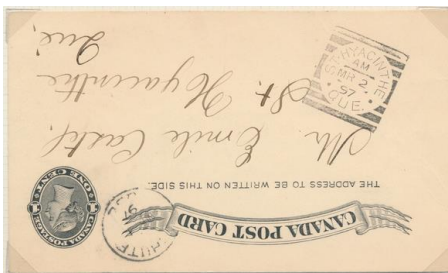 CANADA POST CARD
THE ADDRESS TO BE WRITTEN ON THIS SIDE.
CANADA POSTAGE
ONE CENT
Mr. Emile
St. Hyacinthe
Que.
ST. HYACINTHE
AM
MR 2
97
QUE.